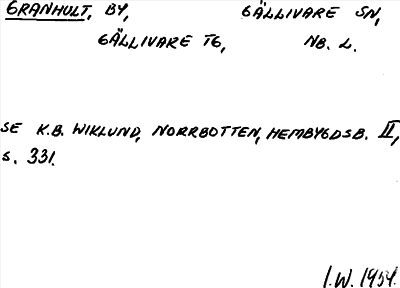 GRANHULT, BY, GÄLLIVARE SN,
GÄLLIVARE TG, NB. L.
SE K.B. WIKLUND, NORRBOTTEN, HEMBYGDSB. II,
s. 331.
I.W. 1954.